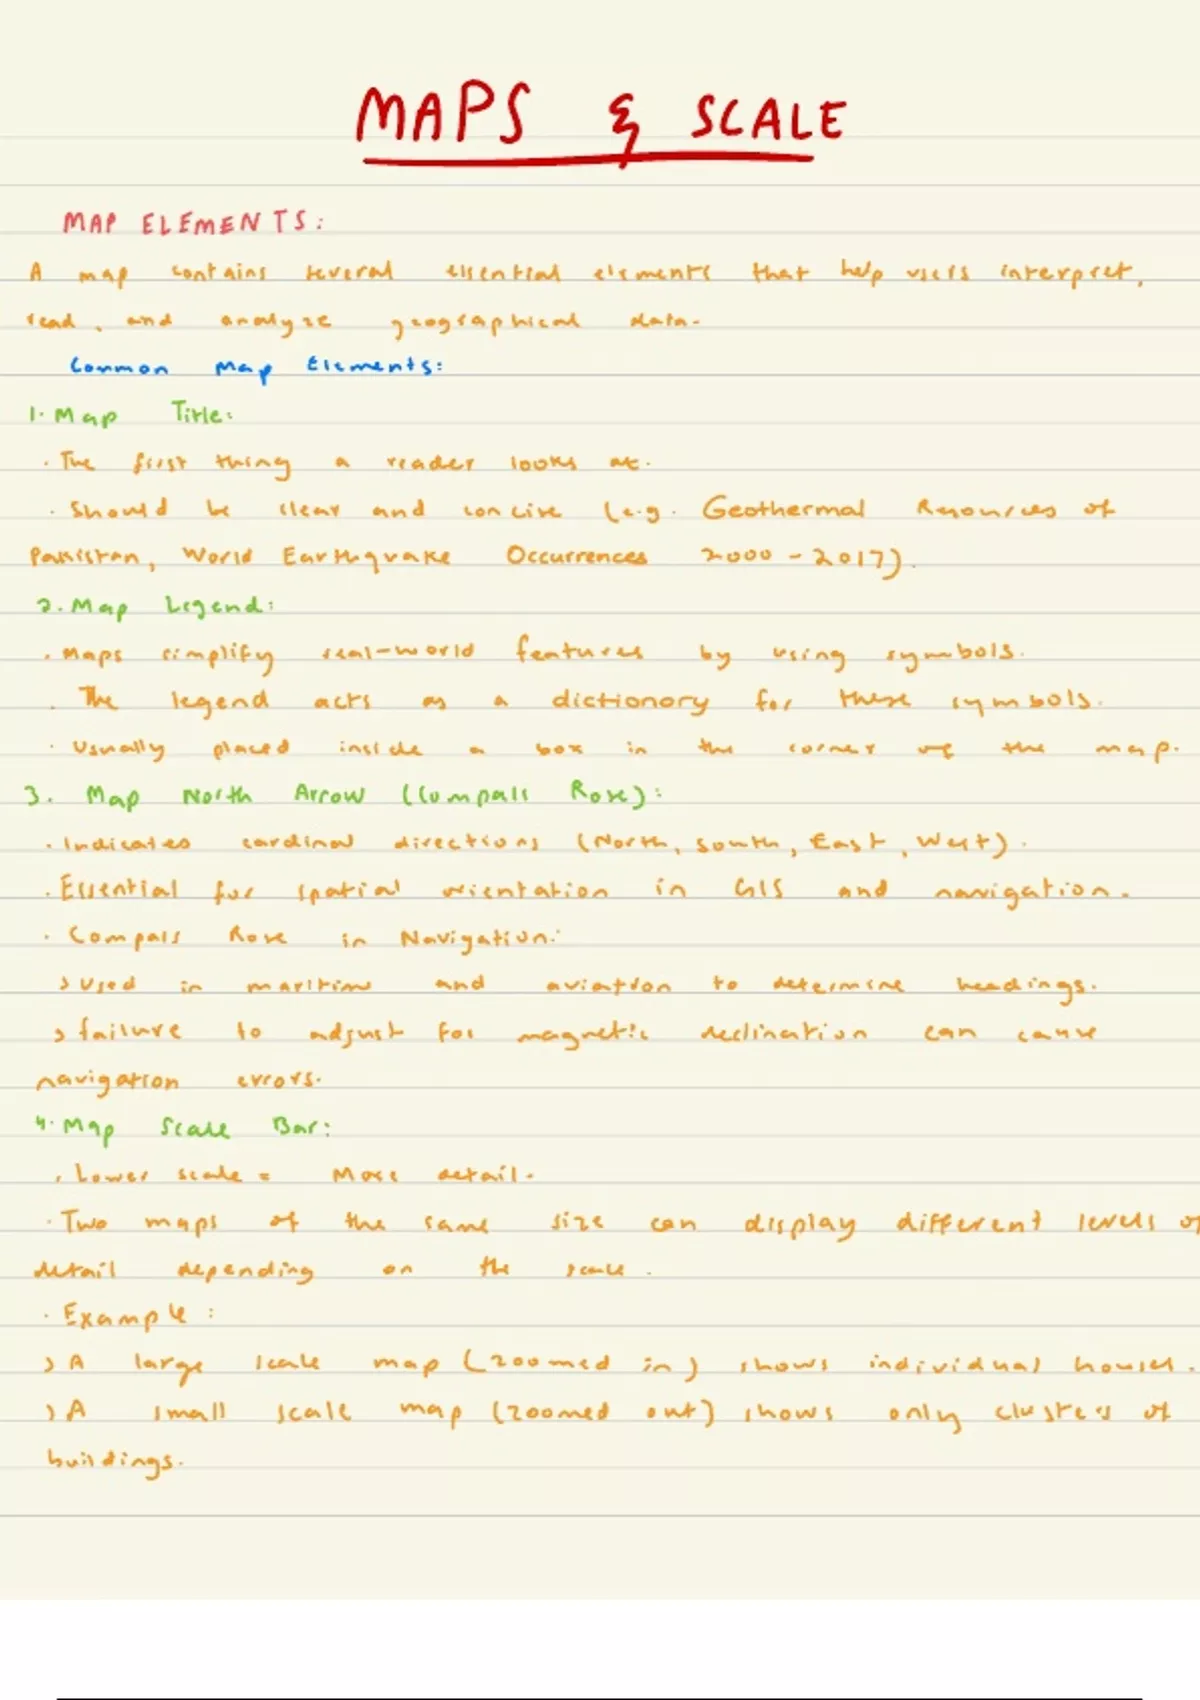 MAPS & SCALE
MAP ELEMENTS:
A map contains several essential elements that help users interpret,
read, and analyze geographical data.
Common Map Elements:
1. Map Title:
· The first thing a reader looks at.
· Should be clear and concise (e.g. Geothermal Resources of
Pakistan, World Earthquake Occurrences 2000 - 2017).
2. Map Legend:
· Maps simplify real-world features by using symbols.
· The legend acts as a dictionary for these symbols.
· Usually placed inside a box in the corner of the map.
3. Map North Arrow (Compass Rose):
· Indicates cardinal directions (North, South, East, West).
· Essential for spatial orientation in GIS and navigation.
· Compass Rose in Navigation:
> Used in maritime and aviation to determine headings.
> failure to adjust for magnetic declination can cause
navigation errors.
4. Map Scale Bar:
· Lower scale = More detail.
· Two maps of the same size can display different levels of
detail depending on the scale.
· Example:
> A large scale map (zoomed in) shows individual houses.
> A small scale map (zoomed out) shows only clusters of
buildings.